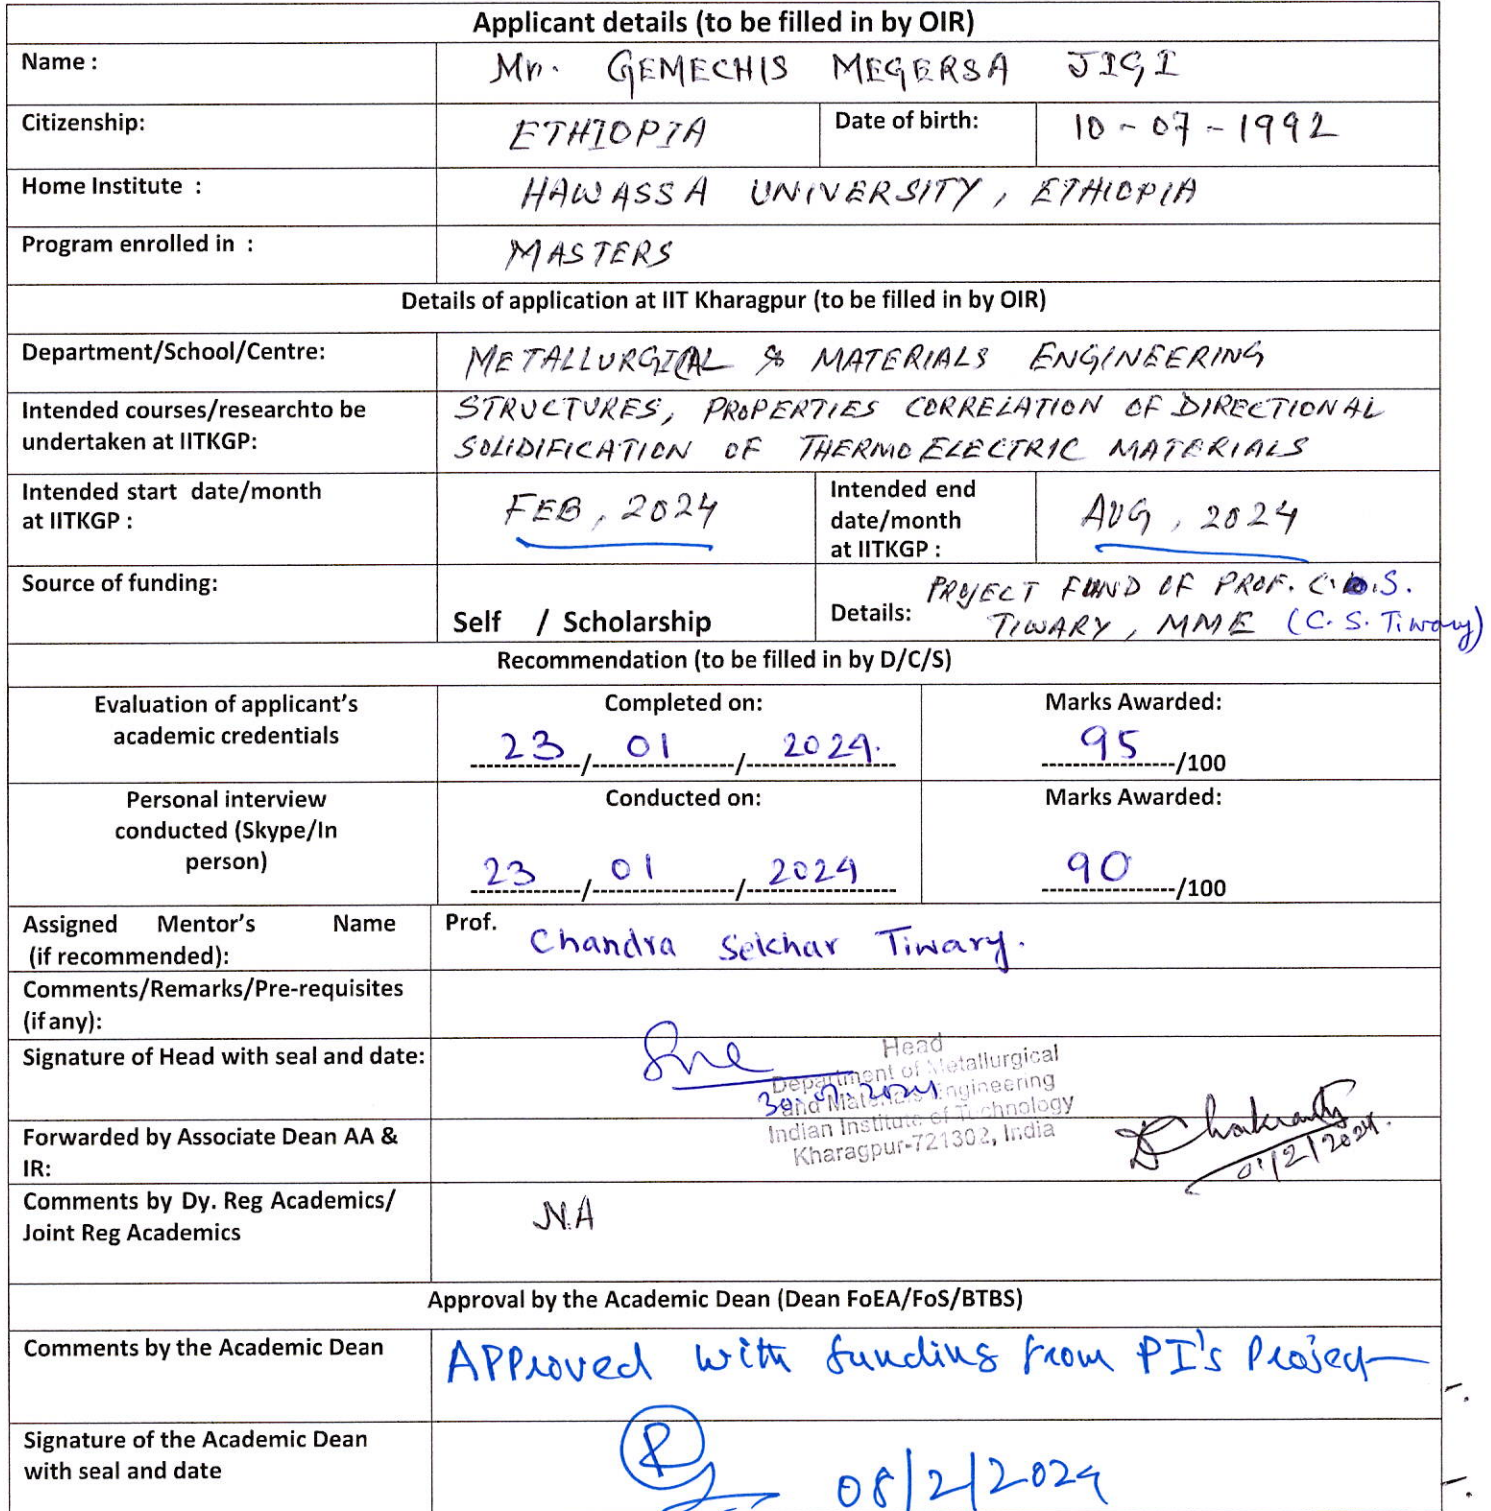 Applicant details (to be filled in by OIR)
Name : Mr. GEMECHIS MEGERSA JIGI
Citizenship: ETHIOPIA Date of birth: 10-07-1992
Home Institute : HAWASSA UNIVERSITY, ETHIOPIA
Program enrolled in : MASTERS
Details of application at IIT Kharagpur (to be filled in by OIR)
Department/School/Centre: METALLURGICAL & MATERIALS ENGINEERING
Intended courses/researchto be
undertaken at IITKGP:
STRUCTURES, PROPERTIES CORRELATION OF DIRECTIONAL
SOLIDIFICATION OF THERMOELECTRIC MATERIALS
Intended start date/month
at IITKGP :
FEB, 2024
Intended end
date/month
at IITKGP :
AUG, 2024
Source of funding:
Self / Scholarship
Details: PROJECT FUND OF PROF. C. S.
TIWARY, MME (C. S. Tiwary)
Recommendation (to be filled in by D/C/S)
Evaluation of applicant's
academic credentials
Completed on:
23/01/2024.
Marks Awarded:
95/100
Personal interview
conducted (Skype/In
person)
Conducted on:
23/01/2024
Marks Awarded:
90/100
Assigned Mentor's Name
(if recommended):
Prof. Chandra Sekhar Tiwary.
Comments/Remarks/Pre-requisites
(if any):
Signature of Head with seal and date:
Head
Department of Metallurgical
and Materials Engineering
Indian Institute of Technology
Kharagpur-721302, India
Forwarded by Associate Dean AA &
IR:
01/2/2024.
Comments by Dy. Reg Academics/
Joint Reg Academics
NA
Approval by the Academic Dean (Dean FoEA/FoS/BTBS)
Comments by the Academic Dean
Approved with funding from PI's Project
Signature of the Academic Dean
with seal and date
08/2/2024